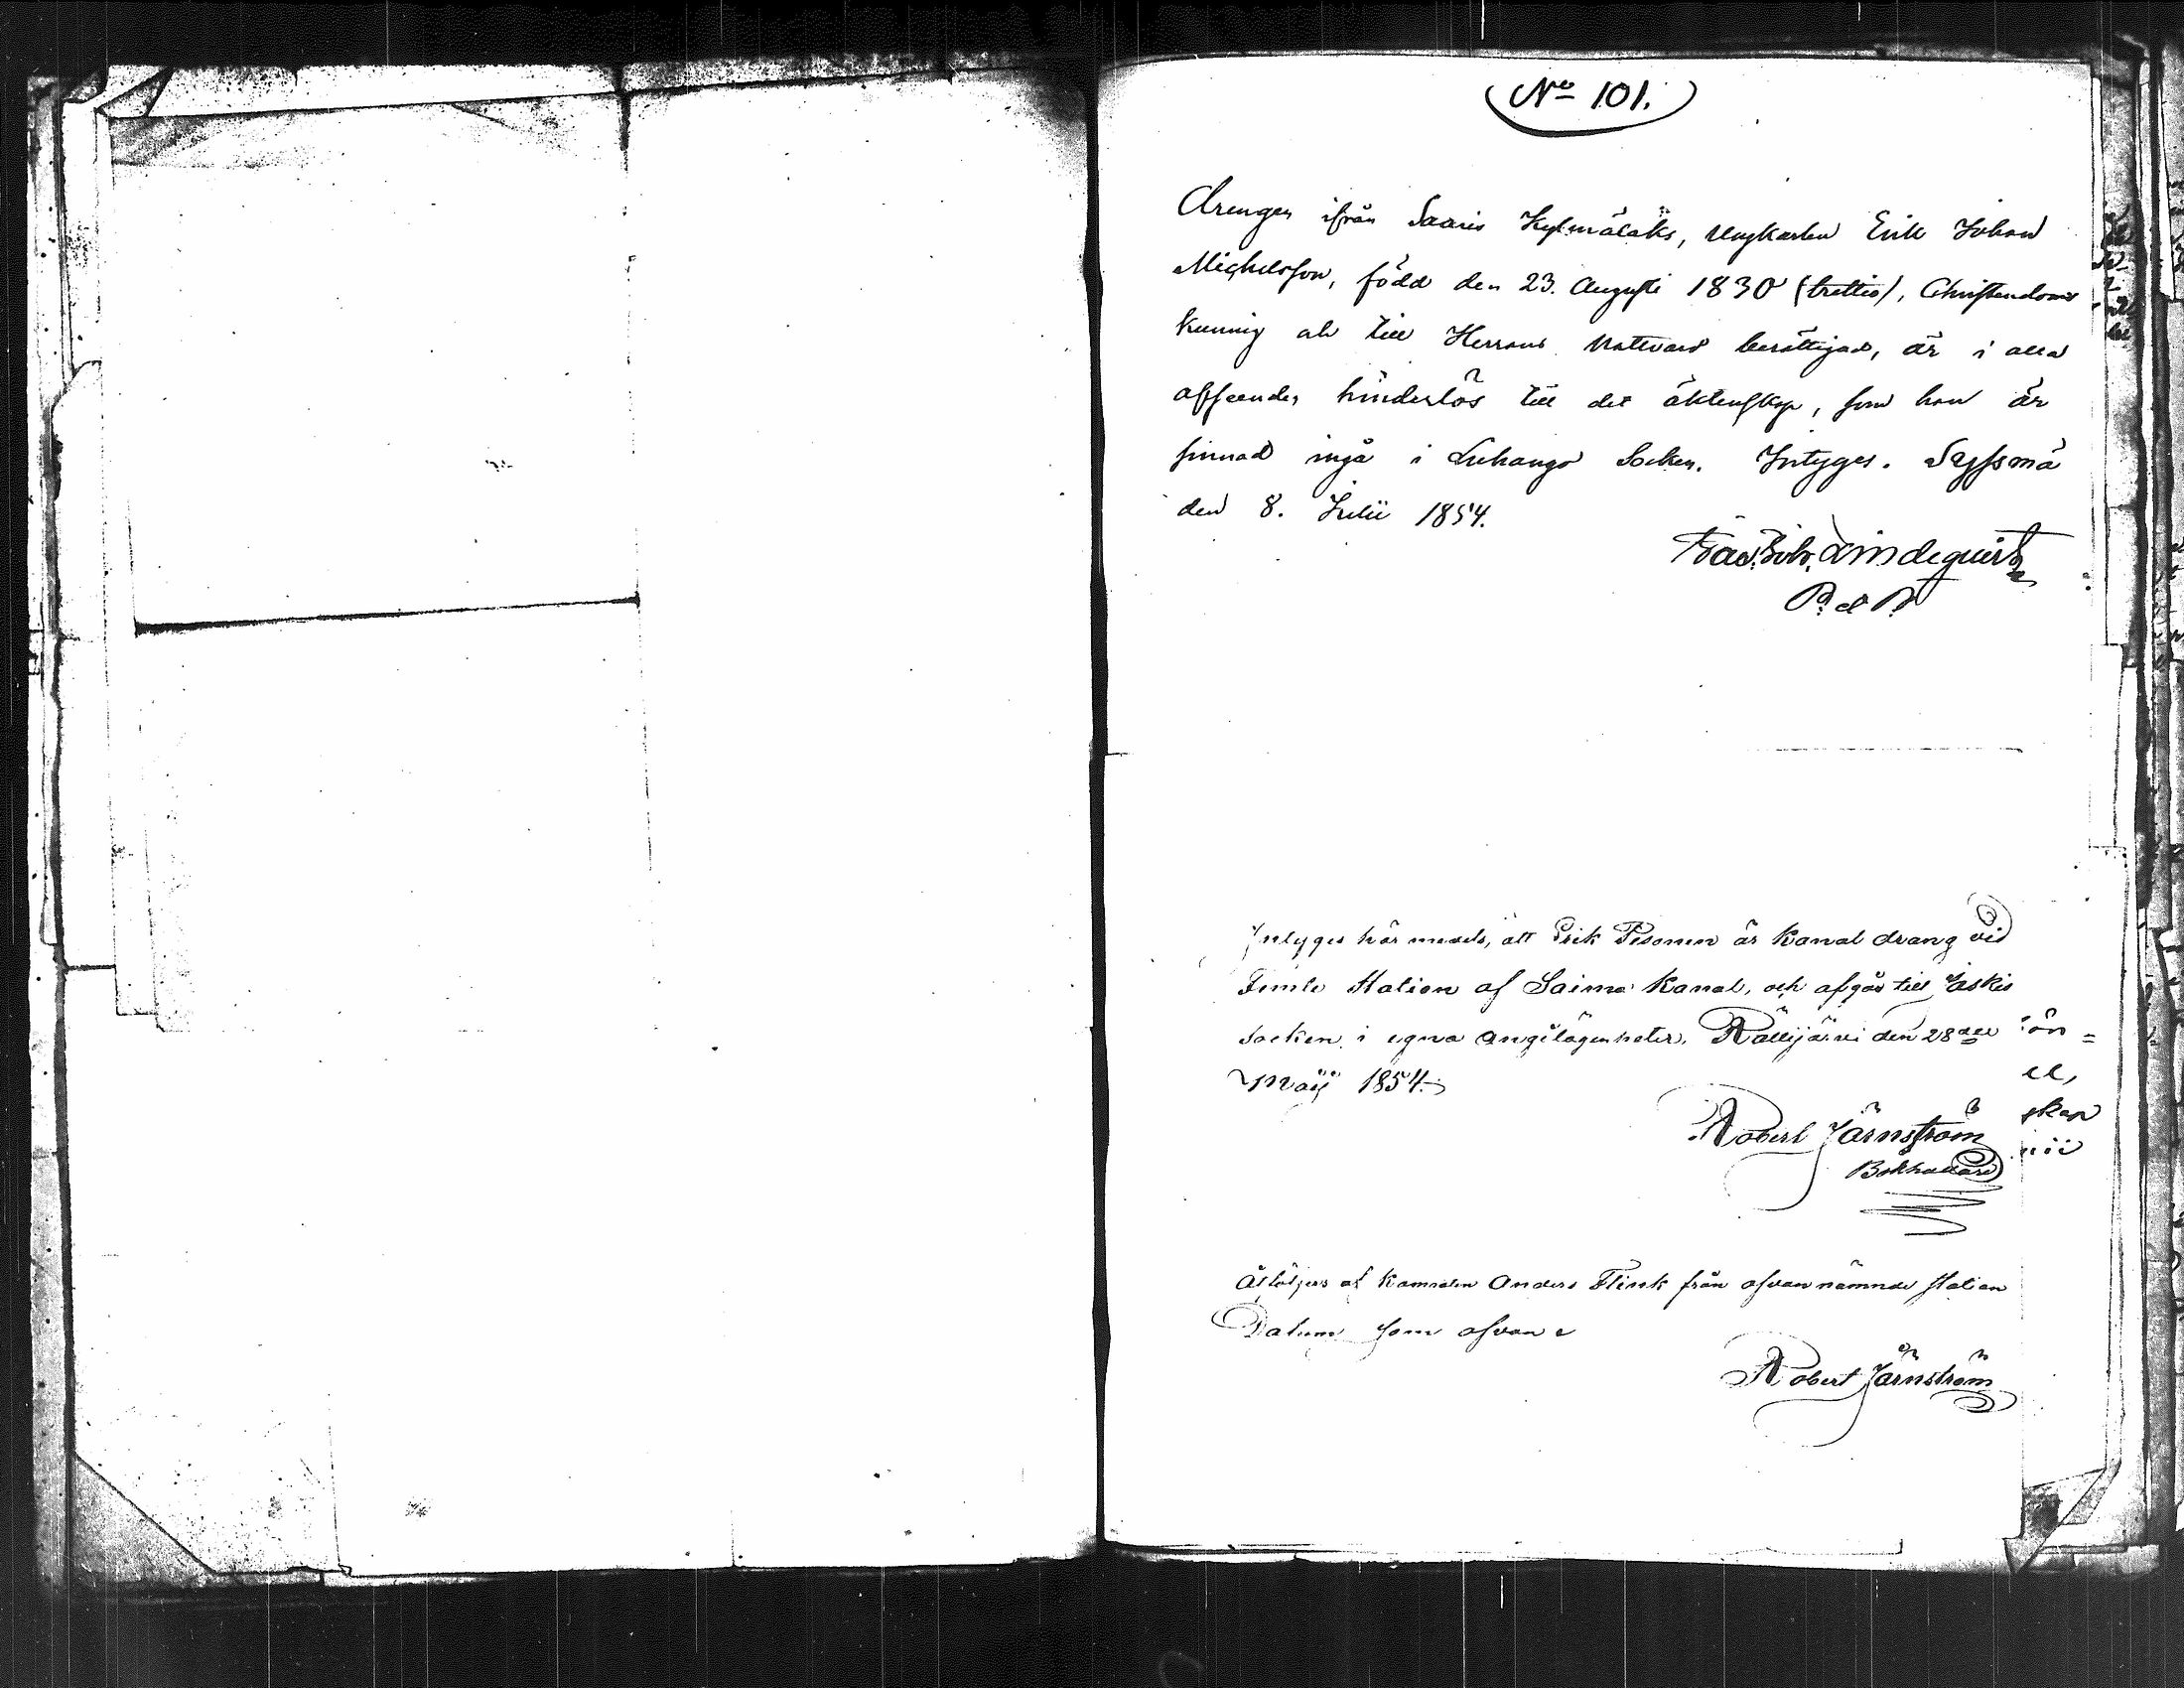 No 101.
Drengen ifrån Saaris Kylmälaks, Ungkarlen Erik Johan
Michelsson, född den 23. Augusti 1830 (trettio), Christendoms
kunnig och till Herrans Nattvard berättigad, är i alla
afseenden hinderlös till det äktenskap, som han är
sinnad ingå i Luhango Socken. Intygas. Sysmä
den 8. Julii 1854.
Joh. Lindequist
P. et P.
Intyges här medels, att Erik Pesonen är Kanal dräng vid
Femte Station af Saima Kanal, och afgår till Jäskis
Socken i egna angelägenheter. Rättijärvi den 28de
Maij 1854.
ön =
el,
skap
nii
Robert Järnström
Bokhållare
Åtföljes af Kamraten Anders Flink från ofvannämnde Station
Datum som ofvan
Robert Järnström